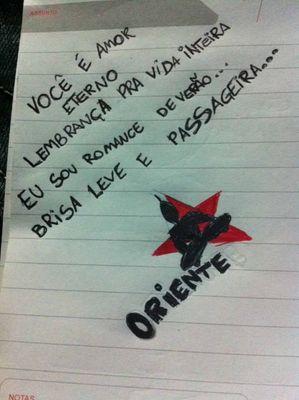 ASSUNTO
VOCÊ É AMOR
ETERNO
LEMBRANÇA PRA VIDA INTEIRA
EU SOU ROMANCE DE VERÃO...
BRISA LEVE E PASSAGEIRA...
ORIENTE
NOTAS